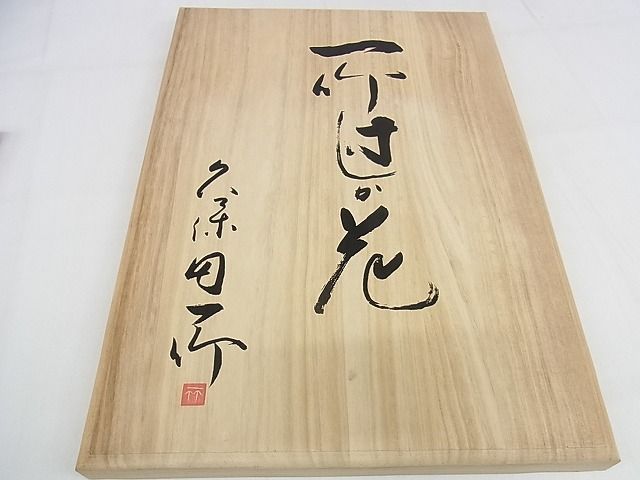 一竹辻が花
久保田一竹
一竹